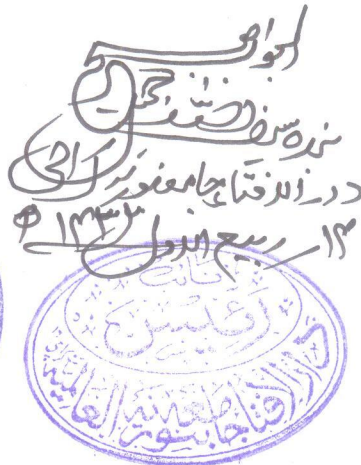 الجواب صحیح
بندہ سیف اللہ جمیل
دار الافتاء جامعہ بنوریہ کراچی
ربیع الاول
نائب
رئیس
دار الافتاء جامعہ بنوریہ العالمیہ